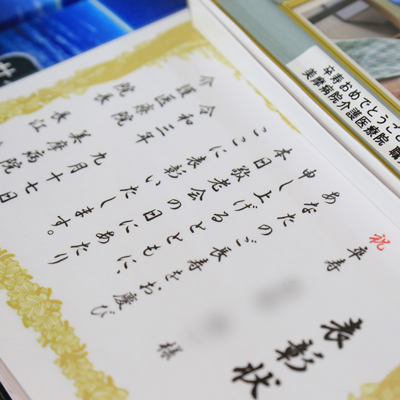 表彰状
祝 卒寿
様
あなたのご長寿をお慶び
申し上げるとともに、
本日敬老会の日にあたり
ここに表彰いたします。
令和三年 九月十七日
介護医療院 美摩病院
院長 長江
卒寿おめでとうご
美摩病院介護医療院 職